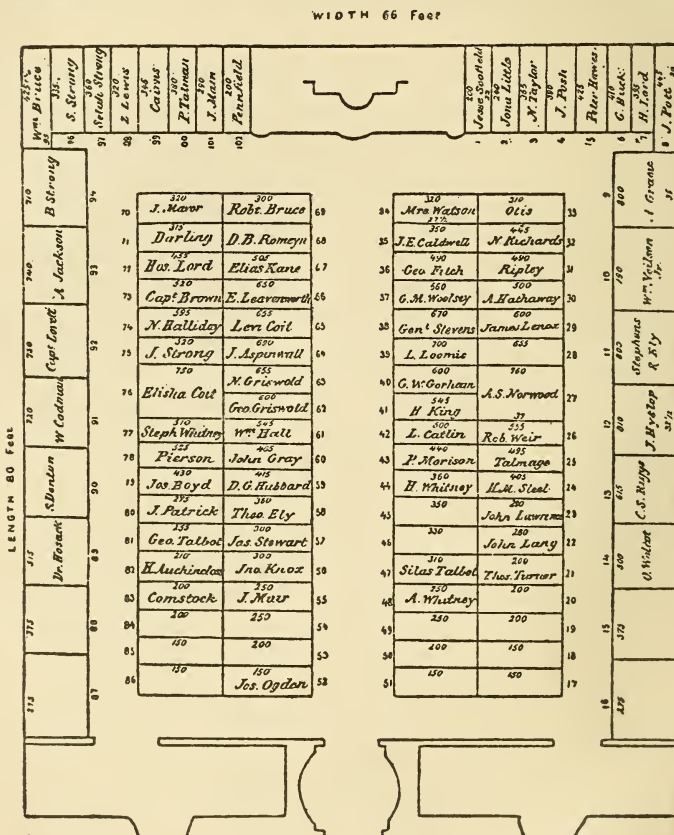 WIDTH 66 Feet
LENGTH 80 Feet
Wm Bruce 95
335 S. Strong 96
360 Selah Strong 97
320 Z Lewis 98
345 Cairns 99
380 P. Talman 100
290 J. Main 101
200 Pennfield 102
200 Jesse Scofield 1
240 Jona Little 2
365 N. Taylor 3
300 J. Posh 4
425 Peter Hawes
410 G. Buck 6
355 H. Lord 7
445 J. Pott 8
710 B Strong 94
740 A Jackson 93
Capt Lovett 92
720 W Codman 91
S. Denton 90
515 Dr. Hosack 89
375 88
275 87
70 320 J. Mavor 300 Robt. Bruce 69
71 315 Darling D.B. Romeyn 68
455 Hos. Lord 505 Elias Kane 67
73 520 Capt Brown 650 E. Leavenworth 66
74 595 N. Halliday 655 Levi Coit 65
75 520 J. Strong 690 J. Aspinwall 64
76 750 Elisha Coit 655 N. Griswold 63
600 Geo. Griswold 62
77 510 Steph Whitney 545 Wm Hall 61
78 525 Pierson 465 John Gray 60
79 430 Jos. Boyd 415 D. G. Hubbard 59
80 J. Patrick 360 Theo. Ely 58
81 255 Geo. Talbot 300 Jas. Stewart 57
82 210 H. Auchincloss 300 Jno. Knox 56
83 200 Comstock 250 J. Muir 55
84 200 250 54
85 150 200 53
86 150 150 Jos. Ogden 52
34 320 Mrs. Watson 310 Otis 33
35 350 J.E. Caldwell 445 N. Richards 32
36 490 Geo Fitch 490 Ripley 31
37 560 G. M. Woolsey 500 A. Hathaway 30
38 670 Genl Stevens 600 James Lenox 29
39 700 L. Loomis 655 28
40 600 G. W. Gorham 760 A. S. Norwood 27
41 H King
42 500 L. Catlin 555 Rob. Weir 26
43 440 P. Morison 495 Talmage 25
44 360 H. Whitney 405 24
45 350 John Lawrence 23
46 330 280 John Lang 22
47 310 Silas Talbot 200 Thos. Turner 21
48 250 A. Whitney 200 20
49 250 200 19
50 200 150 18
51 150 150 17
9 800 Grame
10 Wm Neilson Jr.
11 Stephens R Ely
12 810 J. Hyslop
13 615 C. S. Riggs
14 500 O. Wolcot
15 375
16 275